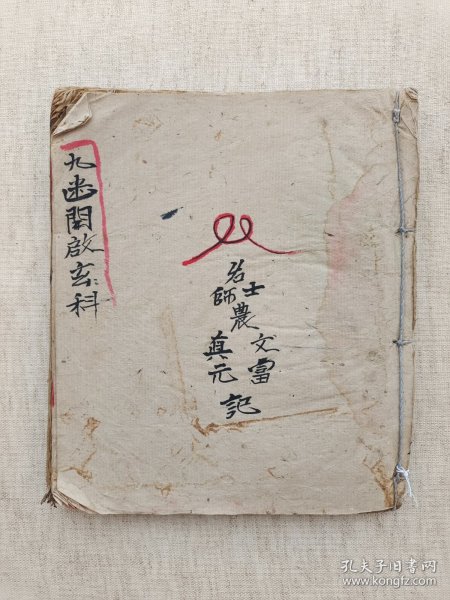 九幽開啟玄科
士農文富
師真元記
孔夫子旧书网
www.kongfz.com